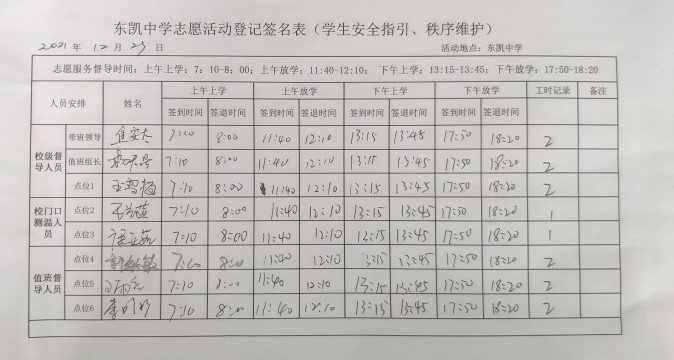 东凯中学志愿活动登记签名表（学生安全指引、秩序维护）
2021年12月23日 活动地点：东凯中学
志愿服务督导时间：上午上学：7：10-8：00；上午放学：11:40-12:10； 下午上学：13:15-13:45；下午放学：17:50-18:20
人员安排 姓名 上午上学 上午放学 下午上学 下午放学 工时记录 备注
签到时间 签退时间 签到时间 签退时间 签到时间 签退时间 签到时间 签退时间
校级督导人员
带班领导 7:10 8:00 11:40 12:10 13:15 13:45 17:50 18:20 2
值班组长 7:10 8:00 11:40 12:10 13:15 13:45 17:50 18:20 2
点位1 7:10 8:00 11:40 12:10 13:15 13:45 17:50 18:20 2
校门口测温人员
点位2 7:10 8:00 11:40 12:10 13:15 13:45 17:50 18:20 1
点位3 7:10 8:00 11:40 12:10 13:15 13:45 17:50 18:20 1
值班督导人员
点位4 7:10 8:00 11:40 12:10 13:15 13:45 17:50 18:20 2
点位5 7:10 8:00 11:40 12:10 13:15 13:45 17:50 18:20 2
点位6 7:10 8:00 11:40 12:10 13:15 13:45 17:50 18:20 2